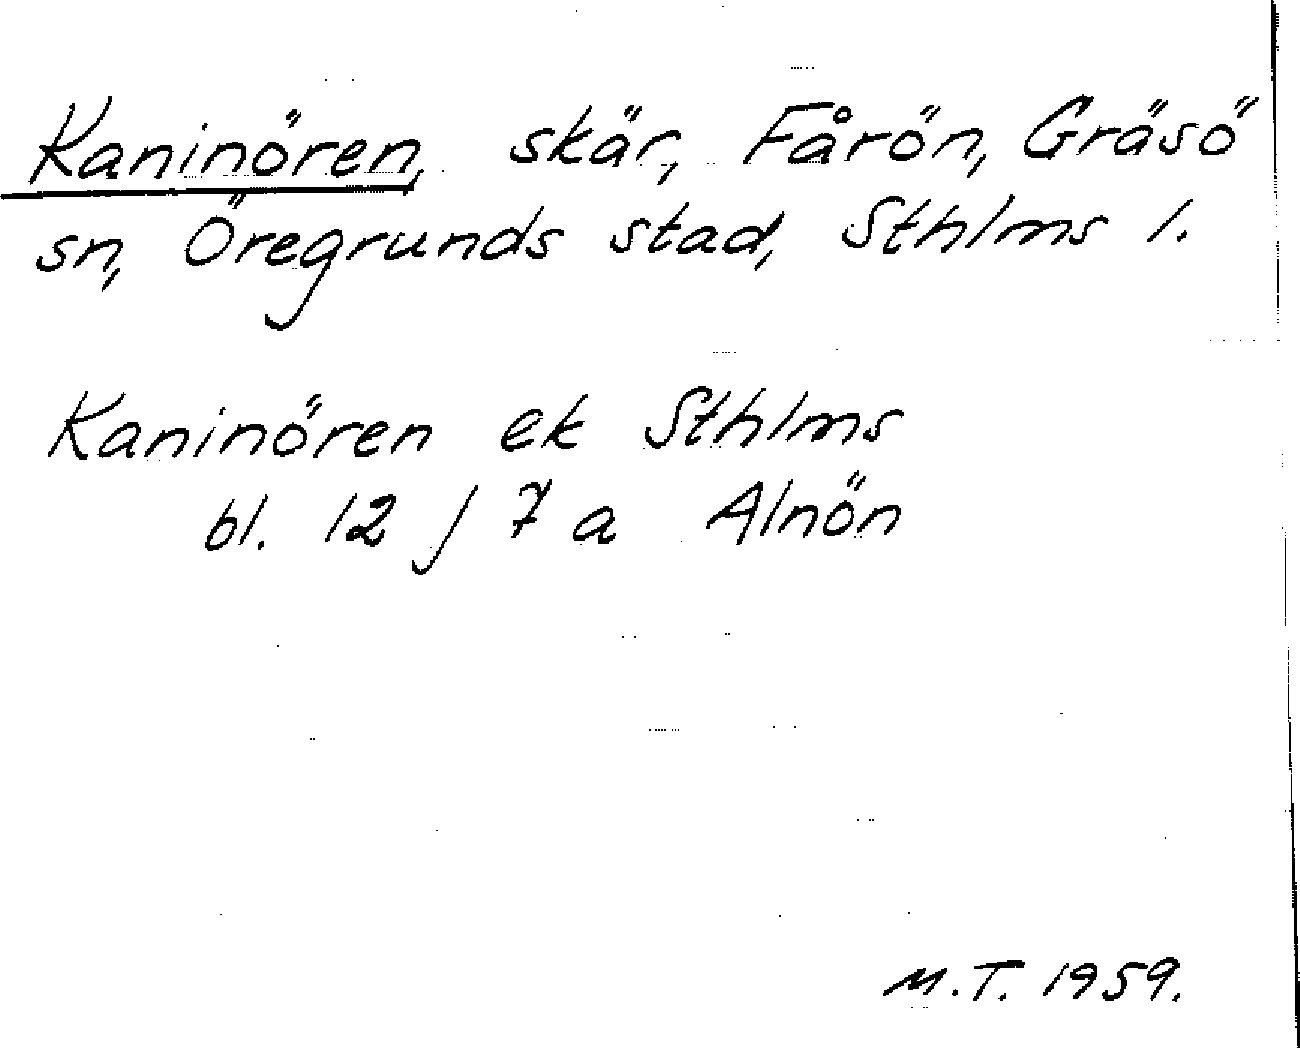 Kaninören, skär, Fårön, Gräsö
sn, Öregrunds stad, Sthlms l.
Kaninören ek Sthlms
bl. 12 j 7 a Alnön
M.T. 1959.